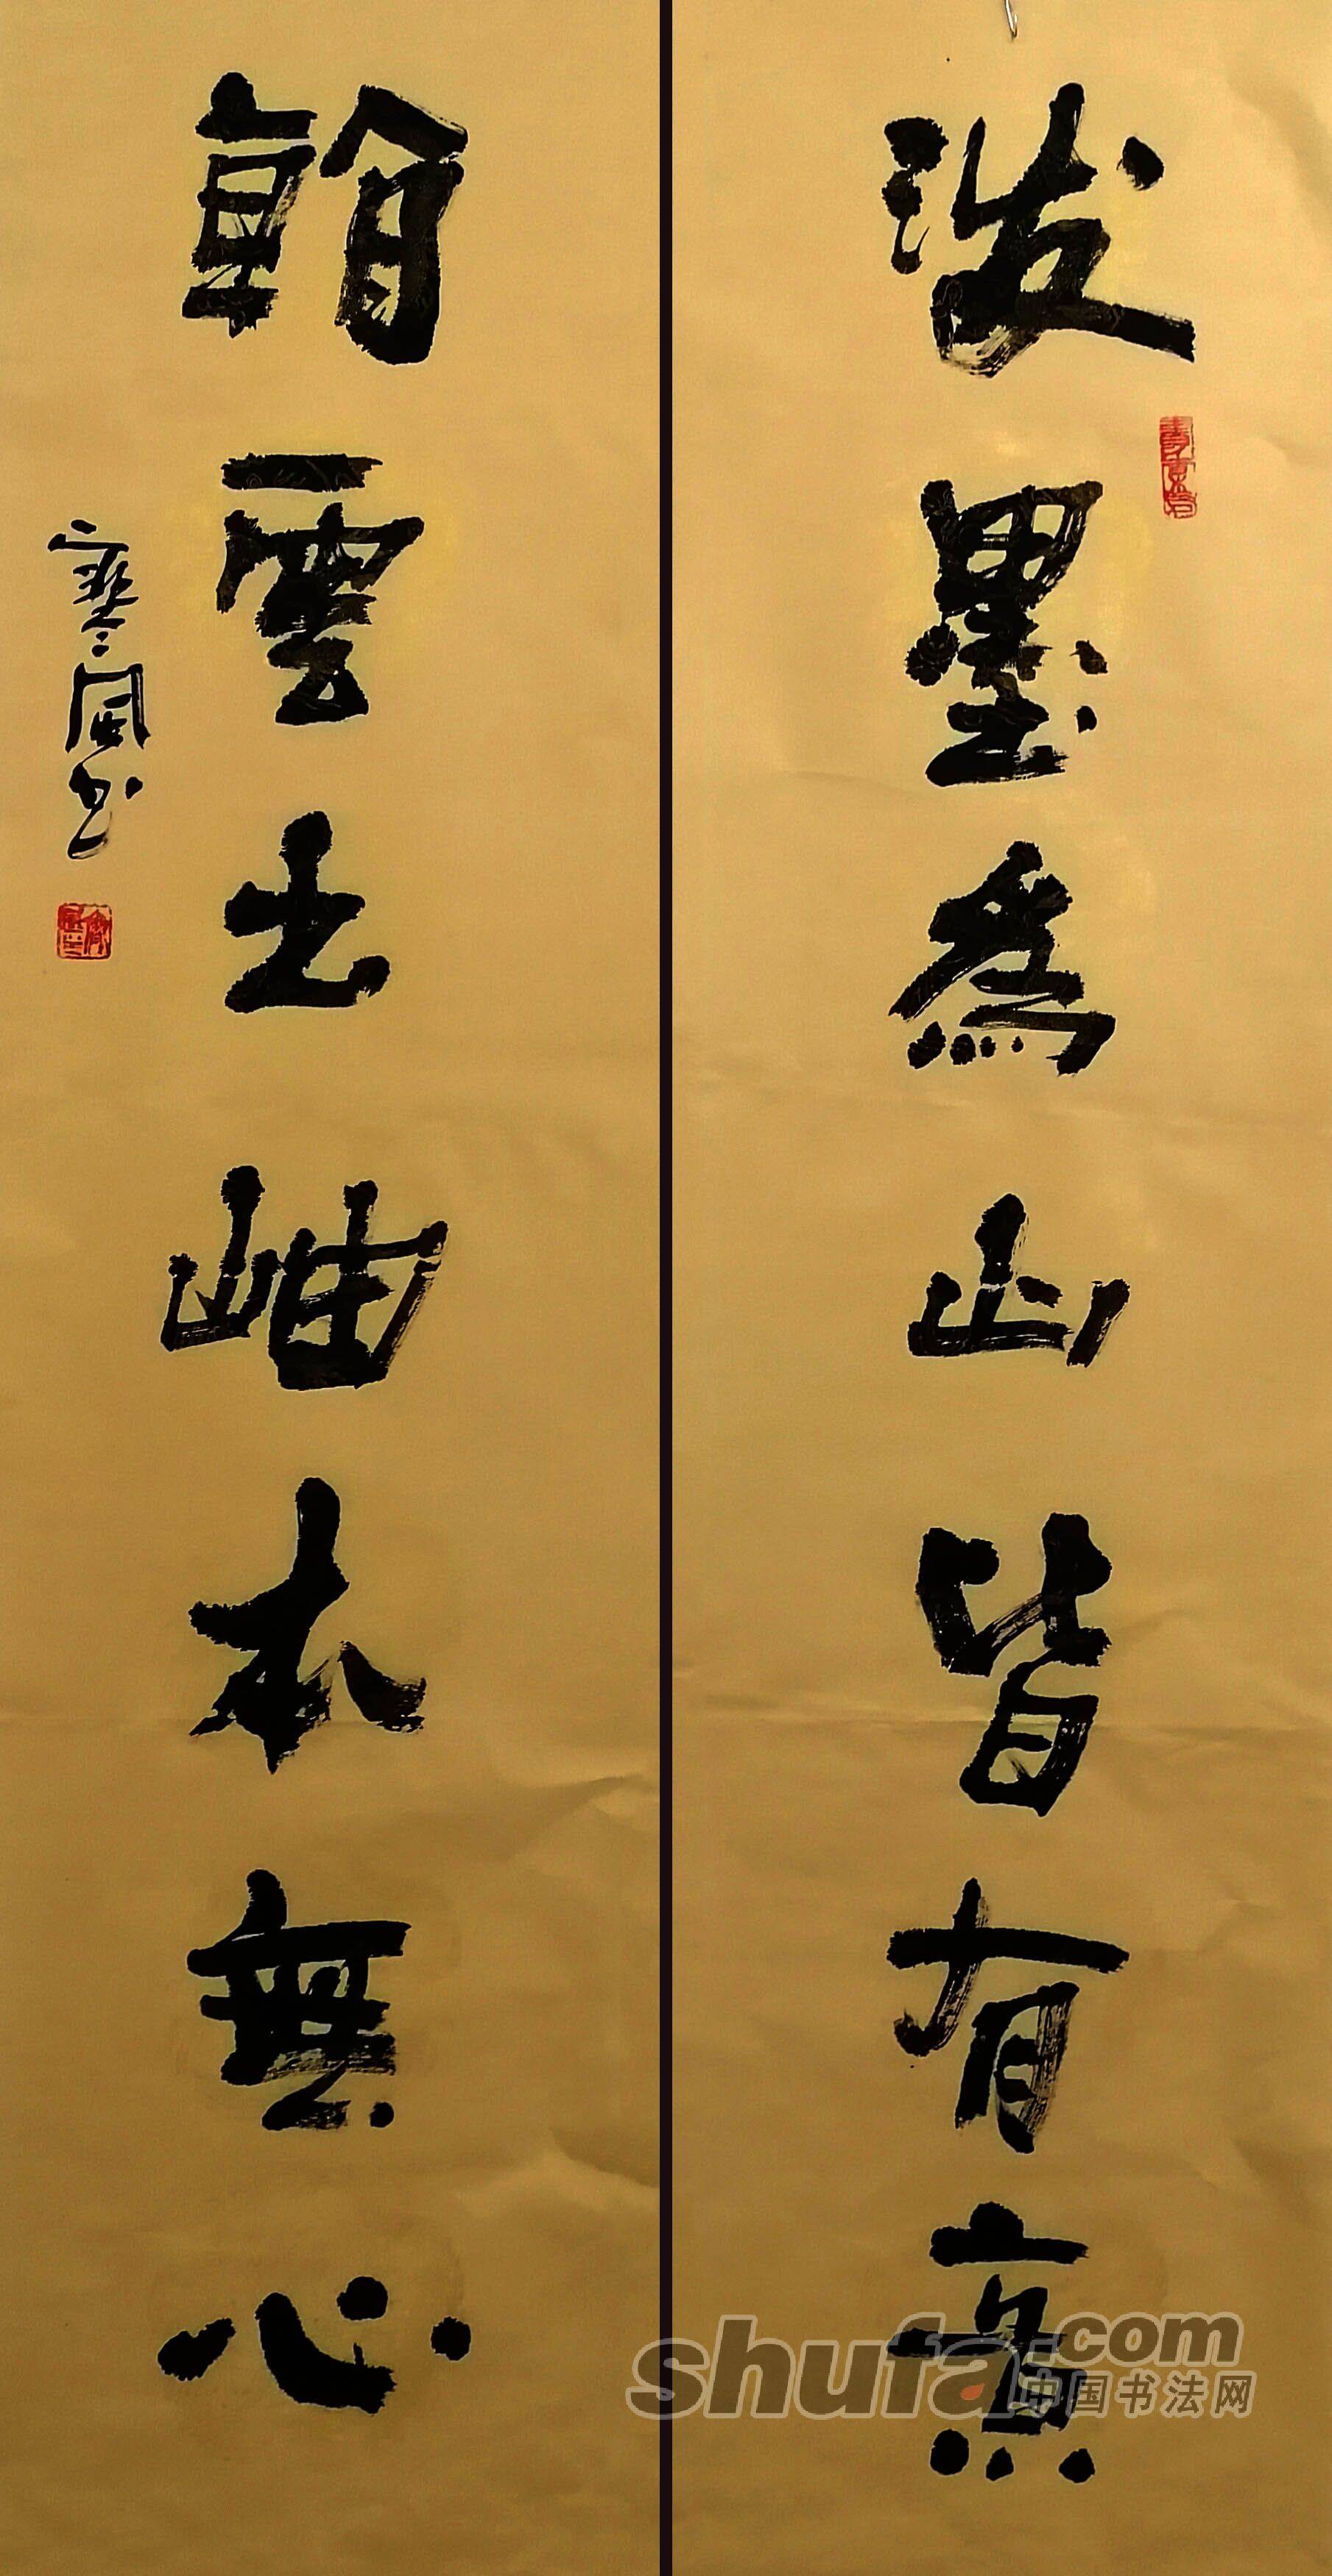 泼墨為山皆有意
翰雲出岫本無心
寒風书
shufa.com
中国书法网